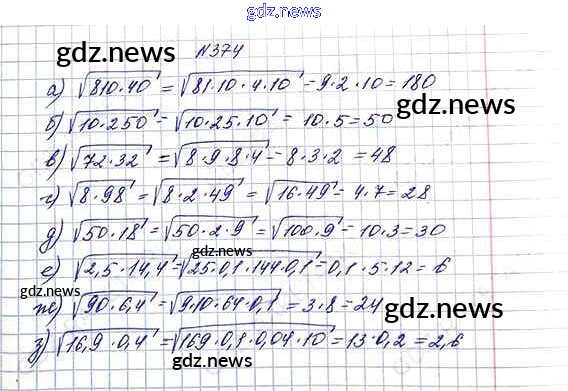 gdz.news
gdz.news
N374
а) √810·40 = √81·10·4·10 = 9·2·10 = 180
gdz.news
б) √10·250 = √10·25·10 = 10·5 = 50
в) √72·32 = √8·9·8·4 = 8·3·2 = 48
г) √8·98 = √8·2·49 = √16·49 = 4·7 = 28
д) √50·18 = √50·2·9 = √100·9 = 10·3 = 30
gdz.news
е) √2,5·14,4 = √25·0,1·144·0,1 = 0,1·5·12 = 6
gdz.news
ж) √90·6,4 = √9·10·64·0,1 = 3·8 = 24
gdz.news
з) √16,9·0,4 = √169·0,1·0,04·10 = 13·0,2 = 2,6
gdz.news